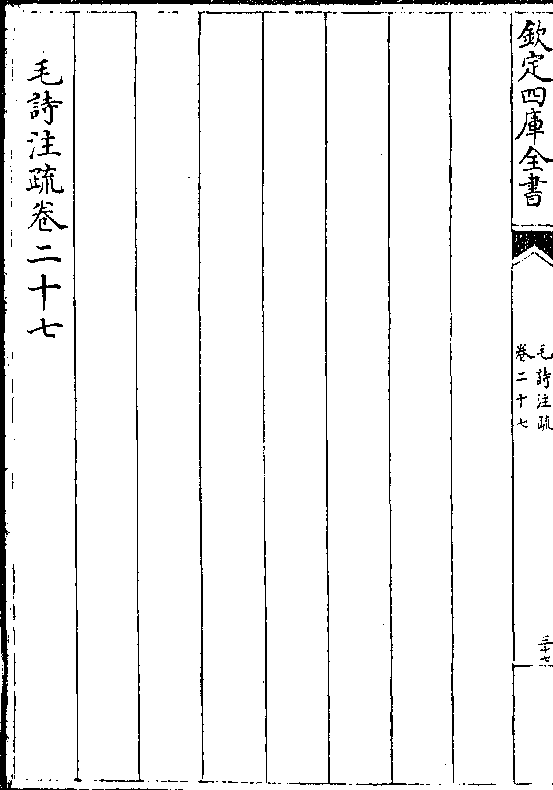 欽定四庫全書
毛詩注疏
卷二十七
三十七
毛詩注疏卷二十七